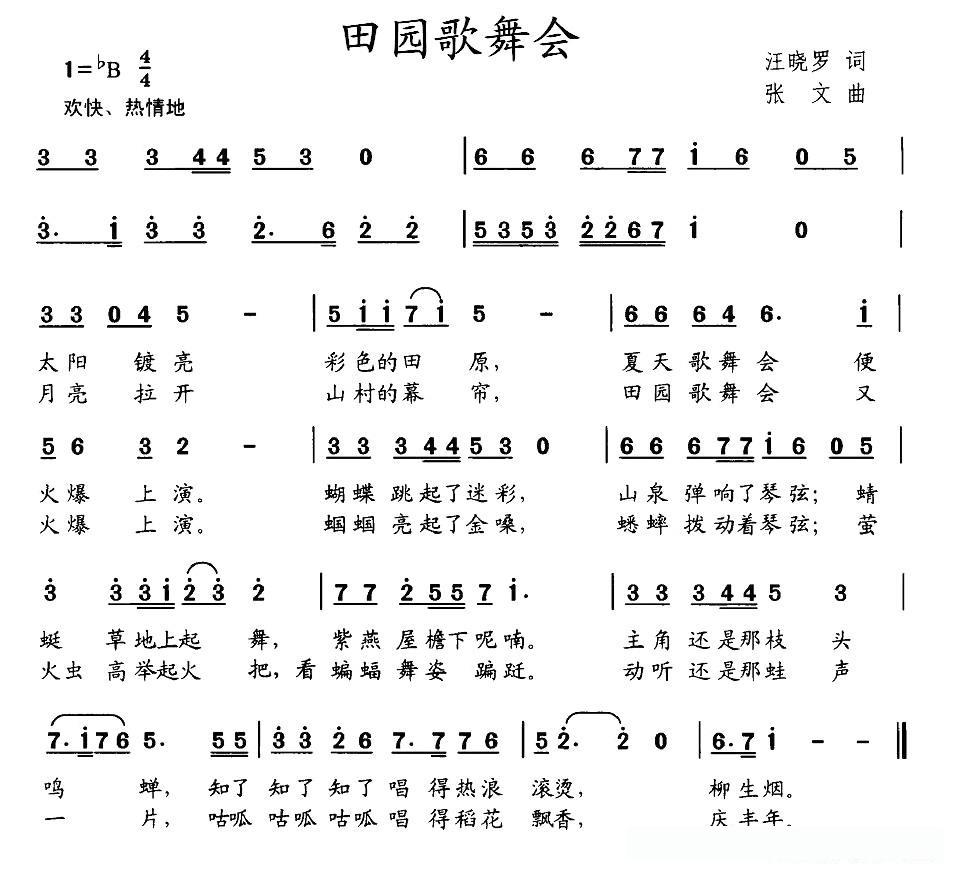 田园歌舞会
1=♭B 4/4
汪晓罗 词
欢快、热情地
张 文 曲
3 3 3 4 4 5 3 0 | 6 6 6 7 7 i 6 0 5 |
3̇. i 3̇ 3̇ 2̇. 6 2̇ 2̇ | 5 3 5 3̇ 2̇ 2̇ 6 7 i 0 |
3 3 0 4 5 - | 5 i i 7 i 5 - | 6 6 6 4 6. i |
太阳 镀亮 彩色的田 原, 夏天歌舞会 便
月亮 拉开 山村的幕 帘, 田园歌舞会 又
5 6 3 2 - | 3 3 3 4 4 5 3 0 | 6 6 6 7 7 i 6 0 5 |
火爆 上演。 蝴蝶 跳起了迷彩, 山泉 弹响了琴弦; 蜻
火爆 上演。 蝈蝈 亮起了金嗓, 蟋蟀 拨动着琴弦; 萤
3̇ 3̇ 3̇ i 2̇ 3̇ 2̇ | 7 7 2̇ 5 5 7 i. | 3 3 3 4 4 5 3 |
蜓 草地上起 舞, 紫燕 屋檐下呢喃。 主角 还是那枝 头
火虫 高举起火 把,看 蝙蝠 舞姿 蹁跹。 动听 还是那蛙 声
7. i 7 6 5. 5 5 | 3̇ 3̇ 2̇ 6 7. 7 7 6 | 5 2̇. 2̇ 0 | 6. 7 i - - ‖
鸣 蝉, 知了 知了 知了 唱 得热浪 滚烫, 柳生烟。
一 片, 咕呱 咕呱 咕呱 唱 得稻花 飘香, 庆丰年。